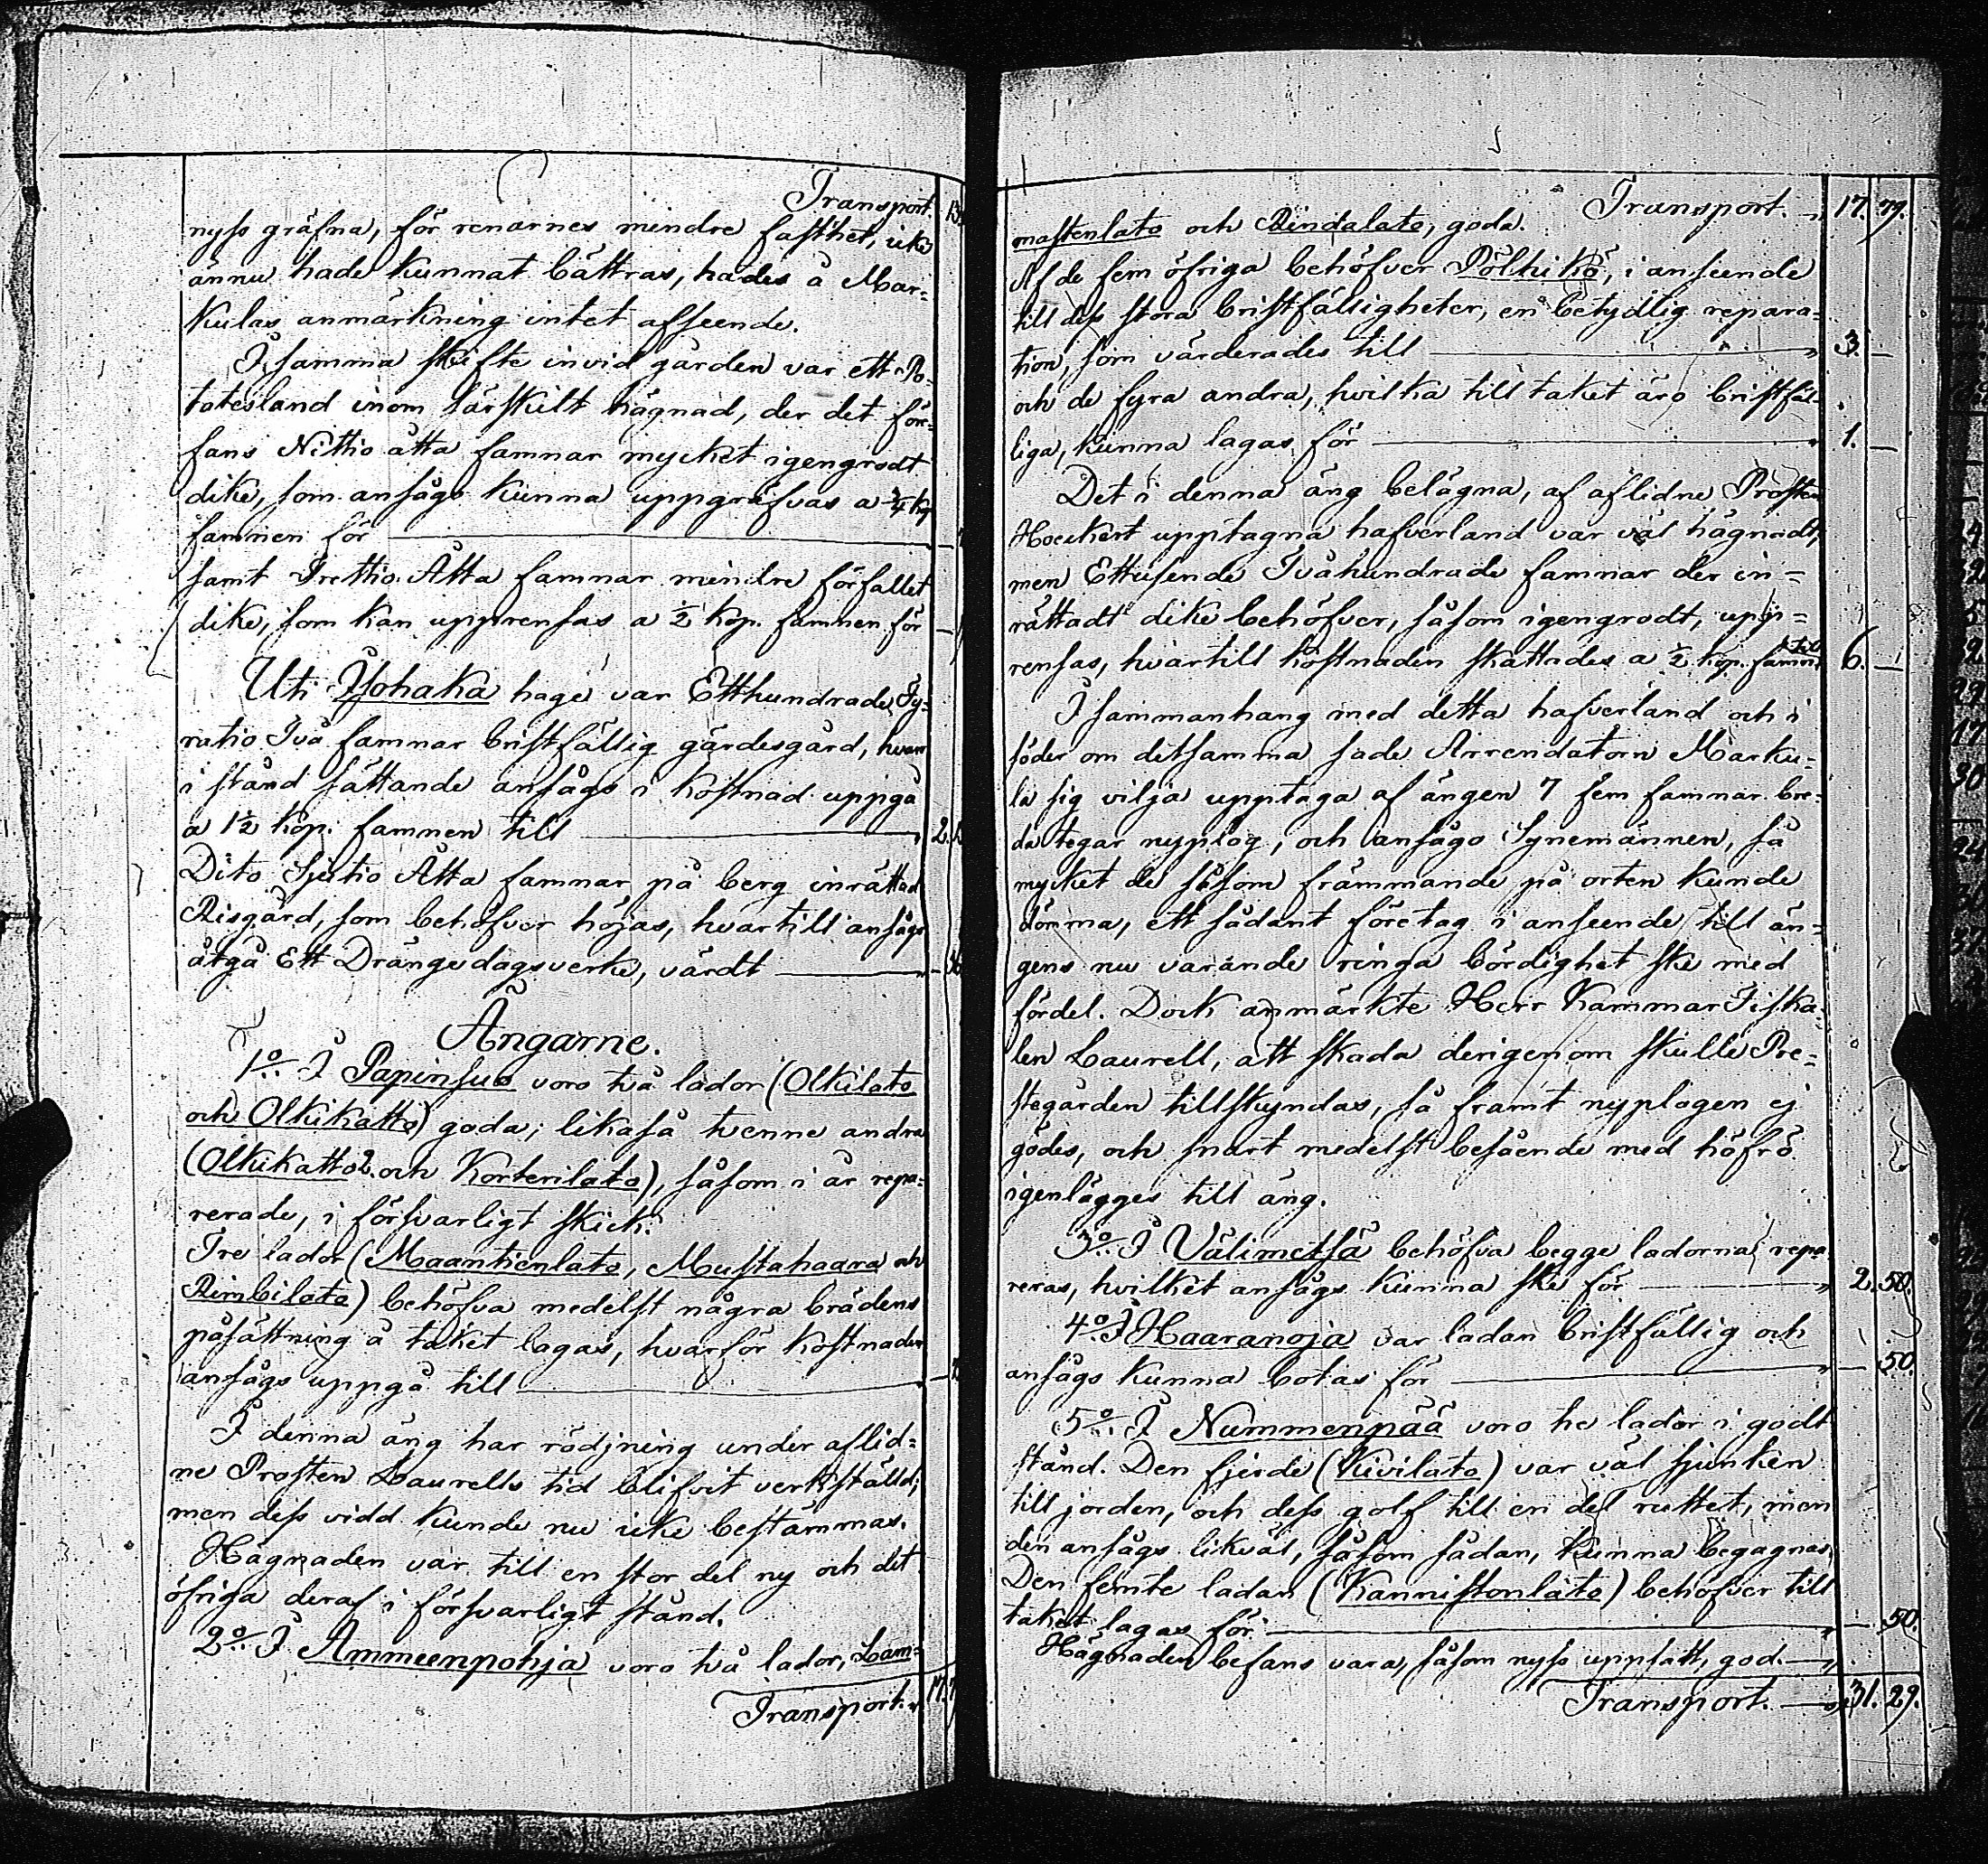 Transport. 13.
nyss gräfna, för renarnes mindre fasthet, icke
ännu hade kunnat bättras, hades å Mar=
kulas anmärkning intet afseende.
I samma skifte invid gården var ett Po=
tatesland inom särskilt hägnad, der det för=
fans Nittio åtta famnar mycket igengrodt
dike, som ansågs kunna uppgräfvas a ¾ kop
famnen för
samt Trettio Åtta famnar mindre förfallet
dike, som kan upprensas a ½ kop. famnen för
Uti Ylohaka hage var Etthundrade Fy=
ratio Två famnar bristfällig gärdesgård, hvars
i stånd sättande ansågs i kostnad uppgå
a 1½ kop. famnen till 2.
Dito Sjutio Åtta famnar på berg inrättad
Risgård, som behöfver höjas, hvartill ansågs
åtgå Ett Drängedagsverke, värdt
Ängarne.
1o. I Papinsuo voro två lador (Olkilato
och Olkikatto) goda; likaså tvenne andra
(Olkikatto 2. och Korterilato), såsom i år repa=
rerade, i försvarligt skick.
Tre lador (Maantienlato, Mustahaara och
Rimbilato) behöfva medelst några brädens
påsättning å taket lagas, hvarför kostnaden
ansågs uppgå till
I denna äng har rödjning under aflid=
ne Prosten Laurells tid blifvit verkställd;
men dess vidd kunde nu icke bestämmas.
Hägnaden var till en stor del ny och det
öfriga deraf i försvarligt stånd.
2o. I Ammeenpohja voro två lador, Lam=
Transport. 17.
Transport. 17. 79.
mastenlato och Rindalato, goda.
Af de fem öfriga behöfver Pölkikö, i anseende
till dess stora bristfälligheter, en betydlig repara=
tion, som värderades till 3. —
och de fyra andra, hvilka till taket äro bristfäl=
liga, kunna lagas för 1. —
Det i denna äng belägna, af aflidne Prosten
Hoeckert upptagna hafverland var väl hägnadt,
men Ettusende Tvåhundrade famnar der in=
rättadt dike behöfver, såsom igengrodt, upp=
rensas, hvartill kostnaden skattades a ½ kop. famn. till 6. —
I sammanhang med detta hafverland och i
söder om detsamma sade Arrendatorn Marku=
la sig vilja upptaga af ängen 7 fem famnar bre=
da tegar nyplog, och ansågo Synemännen, så
mycket de såsom främmande på orten kunde
dömma, ett sådant företag i anseende till än=
gens nu varande ringa bördighet ske med
fördel. Dock anmärkte Herr KammarFiska=
len Laurell, att skada derigenom skulle Pre=
stegården tillskyndas, så framt nyplogen ej
gödes, och snart medelst besående med höfrö
igenlägges till äng.
3o. I Välimetsä behöfva begge ladorna repa=
reras, hvilket ansågs kunna ske för 2. 50.
4o. I Haaranoja var ladan bristfällig och
ansågs kunna botas för — 50.
5o. I Nummenpää voro tre lador i godt
stånd. Den fjerde (Kivilato) var väl sjunken
till jorden, och dess golf till en del ruttet, men
den ansågs likväl, såsom sådan, kunna begagnas.
Den femte ladan (Kannistonlato) behöfver till
taket lagas för — 50.
Hägnaden befans vara, såsom nyss uppsatt, god.
Transport. 31. 29.